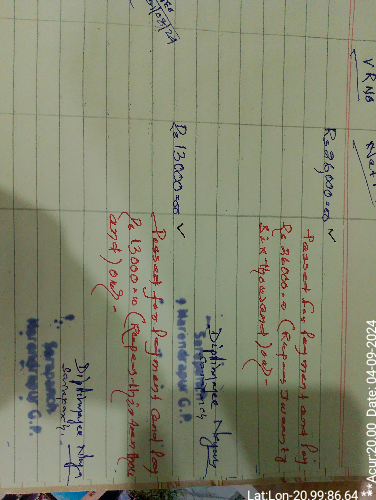 V R No
Rs 26,000=00 ✓
Passed for payment and pay
Rs 26000=00 (Rupees Twenty
Six thousand) only-
Diptimayee Nayak
Sarapanch
Narendrapur G.P.
Rs 13000=00 ✓
Passed for payment and pay
Rs 13000=00 (Rupees thirteen thou
sand) only-
Diptimayee Nayak
Sarapanch
Narendrapur G.P.
Lat:Lon-20.99:86.64 **Acur:20.00 Date: 04-09-2024